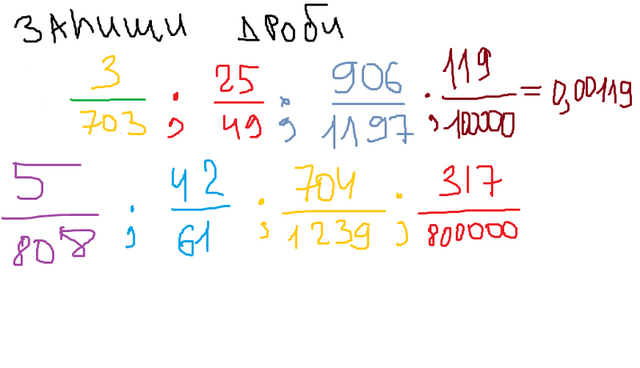 ЗАПИШИ ДРОБИ
3/703 ; 25/49 ; 906/1197 ; 119/100000 = 0,00119
5/808 ; 42/61 ; 704/1239 ; 317/800000